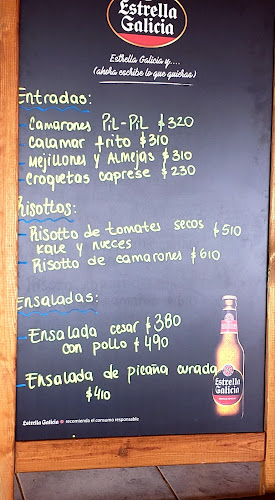 Estrella
Galicia
Estrella Galicia y....
(ahora escribe lo que quieras)
Entradas:
- Camarones Pil-Pil $320
- Calamar frito $310
- Mejillones y Almejas $310
- Croquetas caprese $230
Risottos:
- Risotto de tomates secos $510
kale y nueces
- Risotto de camarones $610
Ensaladas:
- Ensalada cesar $380
con pollo $490
- Ensalada de picaña curada
$410
Estrella
Galicia
Estrella Galicia recomienda el consumo responsable